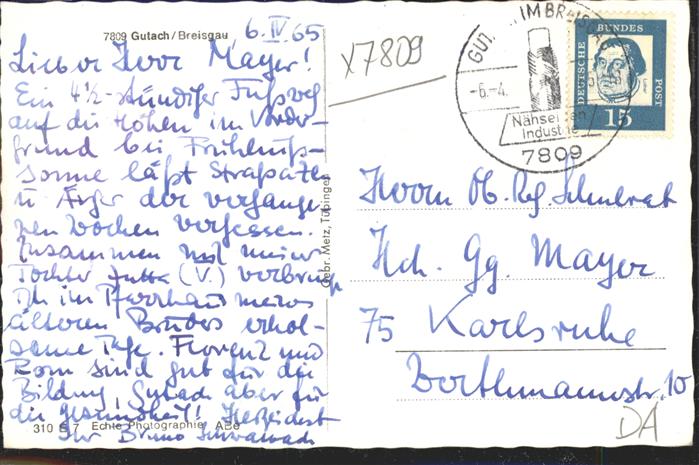 7809 Gutach/Breisgau
6. IV 65
Lieber Herr Mayer!
Ein 4½-stündiger Fußweg
auf die Höhen im Vorder-
grund bei Frühlings-
sonne läßt Strapazen
u Ärger der vergange-
nen Wochen vergessen.
Zusammen mit meiner
Tochter Jutta (V.) verbringe
ich im Pfarrhaus meines
älteren Bruders erhol-
same Tage. Florenz und
Rom sind gut für die
Bildung, Gutach aber für
die Gesundheit! Herzlichst
Ihr Bruno
310 E 7 Echte Photographie ABe
Gebr. Metz, Tübingen
x7809
GUT IM BREISGAU
-6.-4.
Nähseiden
Industrie
7809
DEUTSCHE BUNDES POST
15
Herrn Ob. Reg. Schulrat
Hch. Gg. Mayer
75 Karlsruhe
Worthmannstr. 10
DA